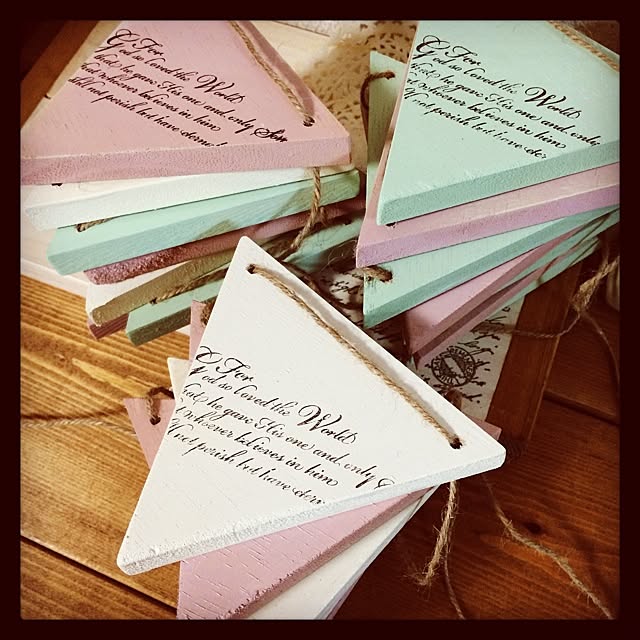 For
God so loved the World
that he gave His one and only Son
that whoever believes in him
not perish but have
For
God so loved the World
that he gave His one and only
whoever believes in him
not perish but have
For
God so loved the World
that he gave His one and only
whoever believes in him
not perish but have